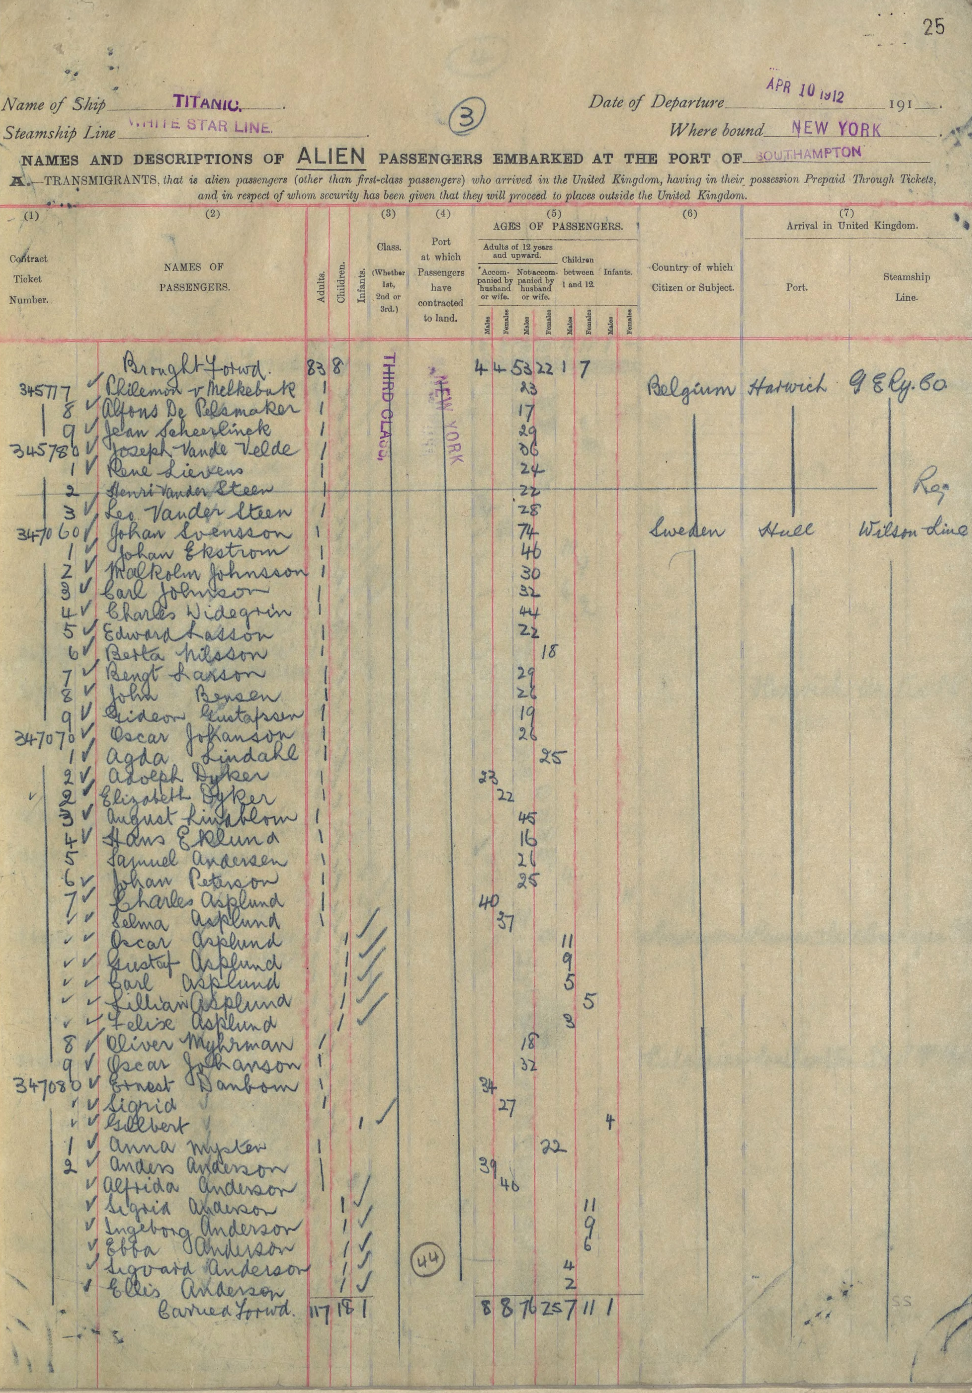 25
Name of Ship TITANIC. Date of Departure APR 10 1912 191
Steamship Line WHITE STAR LINE. 3 Where bound NEW YORK
NAMES AND DESCRIPTIONS OF ALIEN PASSENGERS EMBARKED AT THE PORT OF SOUTHAMPTON
A.—TRANSMIGRANTS, that is alien passengers (other than first-class passengers) who arrived in the United Kingdom, having in their possession Prepaid Through Tickets,
and in respect of whom security has been given that they will proceed to places outside the United Kingdom.
(1) (2) (3) (4) (5) (6) (7)
Contract Ticket Number.
NAMES OF PASSENGERS.
Adults. Children. Infants.
Class. (Whether 1st, 2nd or 3rd.)
Port at which Passengers have contracted to land.
AGES OF PASSENGERS.
Adults of 12 years and upward.
*Accompanied by husband or wife. Not accompanied by husband or wife. Children between 1 and 12. Infants.
Males Females Males Females Males Females Males Females
Country of which Citizen or Subject.
Arrival in United Kingdom.
Port. Steamship Line.
THIRD CLASS,
NEW YORK
Brought Forwd. 83 8 4 4 53 22 1 7
345777 Philemon v Melkebuk 1 23 Belgium Harwich G E Ry. Co
8 Alfons De Pelsmaker 1 17
9 Jean Scheerlinck 1 29
345780 Joseph Vande Velde 1 36
1 Rene Lievens 1 24
2 Henri Vander Steen 1 22
3 Leo Vander Steen 1 28
347060 Johan Svensson 1 74 Sweden Hull Wilson Line
1 Johan Ekstrom 1 46
2 Malkolm Johnsson 1 30
3 Carl Johnson 1 32
4 Charles Widegrin 1 44
5 Edward Lasson 1 22
6 Berta Nilsson 1 18
7 Bengt Larson 1 29
8 John Bensen 1 26
9 Gideon Gustafssen 1 19
347070 Oscar Johanson 1 26
1 Agda Lindahl 1 25
2 Adolph Dyker 1 23
2 Elizabeth Dyker 1 22
3 August Lindblom 1 45
4 Hans Eklund 1 16
5 Samuel Andersen 1 26
6 Johan Peterson 1 25
7 Charles Asplund 1 40
Selma Asplund 1 37
Oscar Asplund 1 11
Gustaf Asplund 1 9
Carl Asplund 1 5
Lillian Asplund 1 5
Felix Asplund 1 3
8 Oliver Myhrman 1 18
9 Oscar Johanson 1 32
347080 Ernest Danbom 1 34
Sigrid 1 27
Gilbert 1 4
1 Anna Nysten 1 22
2 Anders Anderson 1 39
Alfrida Anderson 1 46
Sigrid Anderson 1 11
Ingeborg Anderson 1 9
Ebba Anderson 1 6
Sigvard Anderson 1 4
Ellis Anderson 1 2
44
Carried Forwd. 117 18 1 8 8 76 25 7 11 1